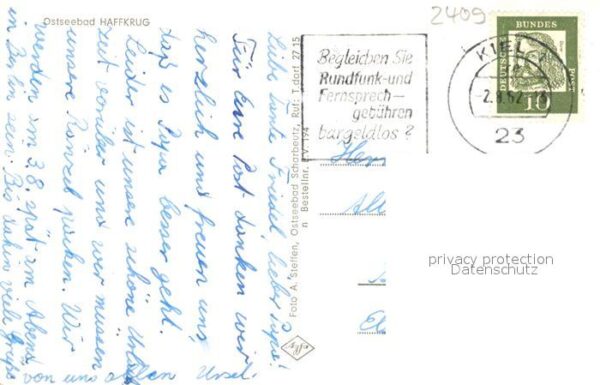 Ostseebad HAFFKRUG
2409
Begleichen Sie
Rundfunk-und
Fernsprech-
gebühren
bargeldlos?
KIEL
-2.8.62
23
DEUTSCHE
BUNDES
POST
10
Foto A. Steffen, Ostseebad Scharbeutz, Ruf: T.dorf 27 15
Bestellnr. CV 194
Liebe Tante Friedel, lieber Papa!
Für Eure Post danken wir
herzlich und freuen uns,
daß es Papa besser geht.
Leider ist unsere schöne Urlaubs
zeit vorüber und wir müssen
unsere Bündel packen. Wir
werden am 3.8. spät am Abend
in Berlin sein. Bis dahin viele Grüße
von uns allen Ursel.
Agfa
privacy protection
Datenschutz